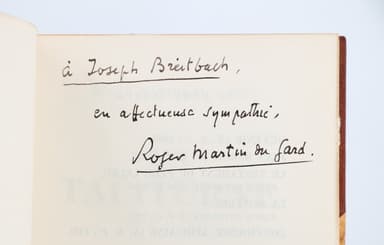 à Joseph Breitbach,
en affectueuse sympathie,
Roger Martin du Gard.